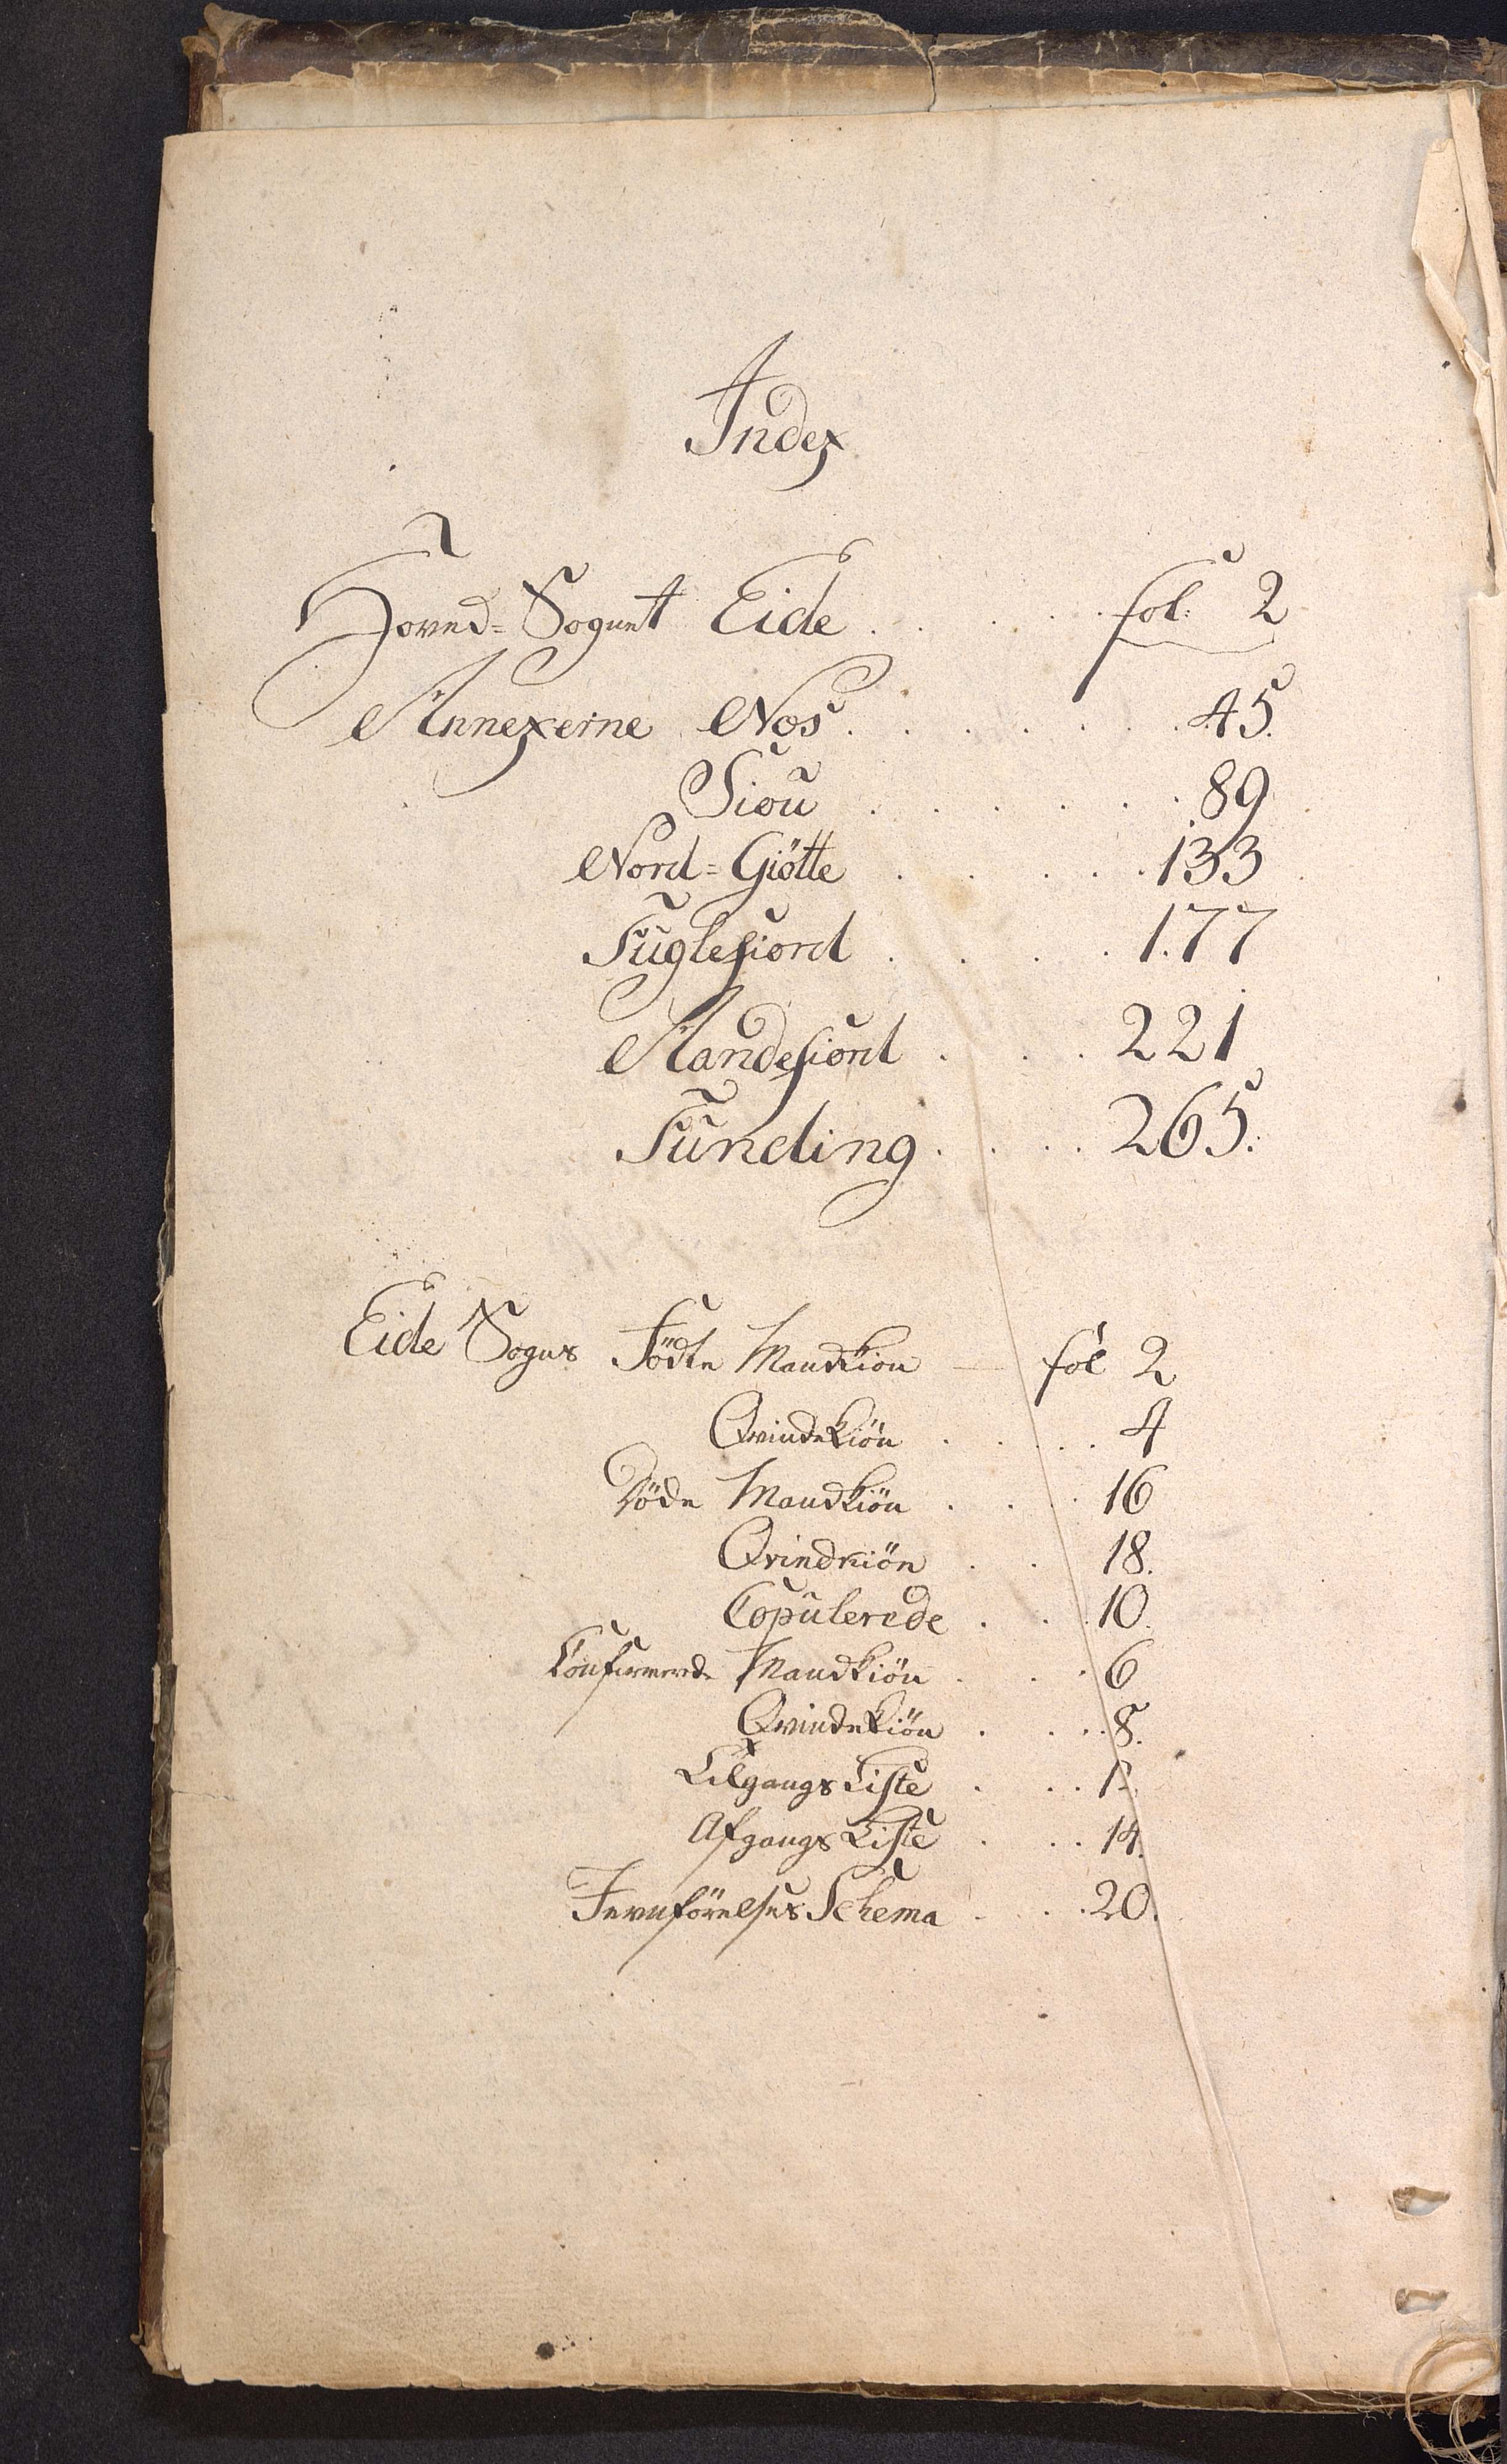 Index
Hoved=Sognet Eide . . . . . fol: 2
Annexerne Nos . . . . . . 45.
Siou . . . . . . 89
Nord=Giötte . . . . . 133
Fuglefiord . . . . 177
Andefiord . . . 221
Funding . . . . 265.
Eide Sogns Födte Mandkiön — fol 2
Qvindekiön . . . . 4
Döde Mandkiön . . . 16
Qvindkiön . . 18.
Copulerede . . . 10.
Confirmerede Mandkiön . . . 6
Qvindekiön . . . . 8.
Tilgangs Liste . . . 12.
Afgangs Liste . . . 14.
Jevnförelses Schema . . . 20.